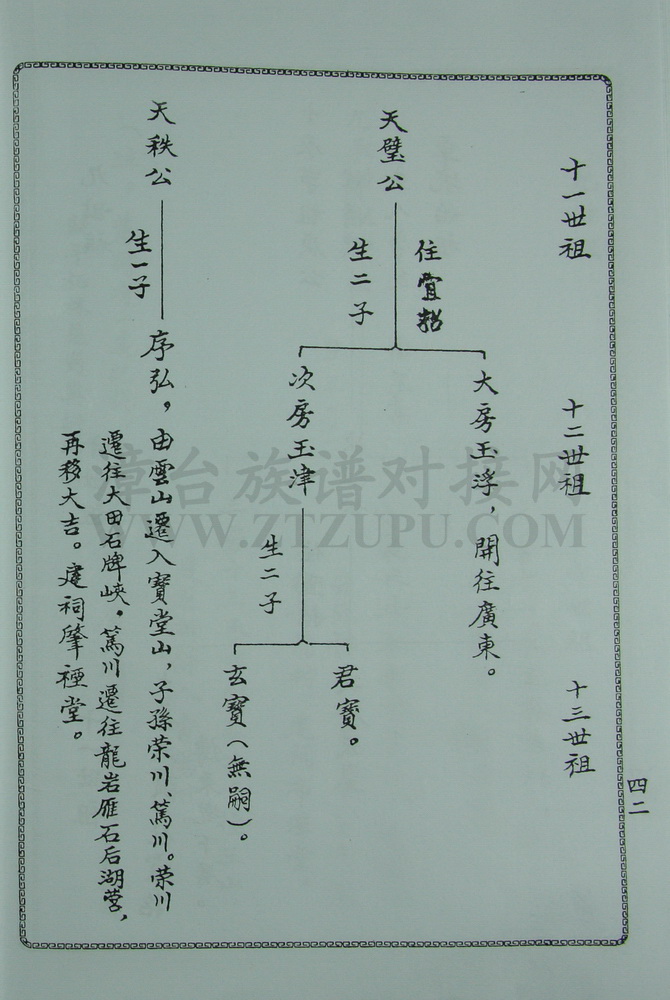 十一世祖
十二世祖
十三世祖
四二
天璧公
住
生二子
大房玉浮，開往廣東。
次房玉津
生二子
君寶。
玄寶（無嗣）。
天秩公
生一子
序弘，由雲山遷入寶堂山，子孫荣川、篤川。荣川
遷往大田石牌峽。篤川遷往龍岩雁石后湖营，
再移大吉。建祠肇禋堂。
漳台族谱对接网
WWW.ZTZUPU.COM